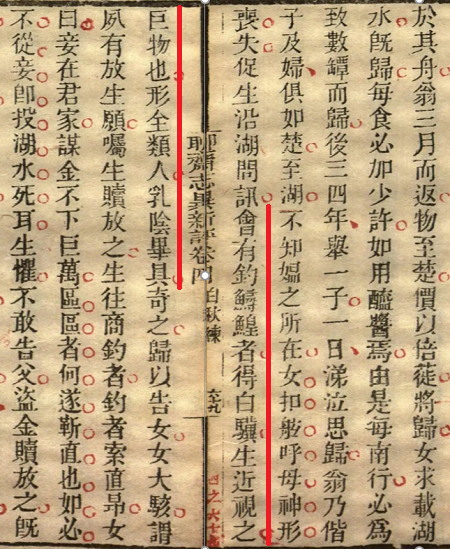 於其舟翁三月而返物至楚價以倍蓰將歸女求載湖
水既歸每食必加少許如用醯醬焉由是每南行必為
致數罈而歸後三四年舉一子一日涕泣思歸翁乃偕
子及婦俱如楚至湖不知媼之所在女扣舷呼母神形
喪失促生沿湖問訊會有釣鱘鰉者得白驥生近視之
聊齋志異新評卷四 白秋練
巨物也形全類人乳陰畢具奇之歸以告女女大駭謂
夙有放生願囑生贖放之生往商釣者釣者索直昂女
曰妾在君家謀金不下巨萬區區者何遂靳直也如必
不從妾即投湖水死耳生懼不敢告父盜金贖放之既